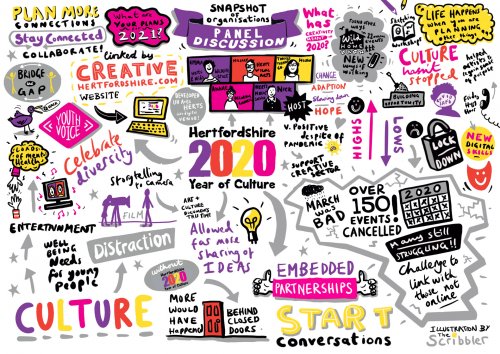 PLAN MORE
CONNECTIONS
Stay Connected
COLLABORATE!
WHAT ARE
YOUR PLANS
2021?
SNAPSHOT
of
organisations
PANEL
DISCUSSION
WHAT HAS
CREATIVITY
2020?
WILD
HOME
NEW
WAYS OF
WALKING
LIFE HAPPENS
WHEN
ARE
PLANNING
CULTURE
hasn't
stopped
helped
linked by
CREATIVE
HERTFORDSHIRE.COM
WEBSITE
BRIDGE
the
GAP
YOUTH
VOICE
LOADS
Celebrate
diversity
Storytelling
to camera
FILM
DEVELOPED
HERTS
HOST
CHANGE
ADAPTION
HOPE
Hertfordshire
2020
Year of Culture
V. POSITIVE despite of
PANDEMIC
SUPPORT
CREATIVE
SECTOR
HIGHS
LOWS
BUILDING
OPPORTUNITY
LOCK
DOWN
NEW
DIGITAL
SKILLS
ENTERTAINMENT
WELL
BEING
Needs
for young
PEOPLE
Distraction
CULTURE
Allowed
for more
sharing of
IDEAS
without
2020
MARCH
was
BAD
OVER
150
EVENTS
CANCELLED
2020
many still
STRUGGLING!!
Challenge to
link with
those not
online
EMBEDDED
PARTNERSHIPS
START
conversations
MORE
WOULD
HAVE
HAPPENED
BEHIND
CLOSED
DOORS
ILLUSTRATION BY
The
Scribbler